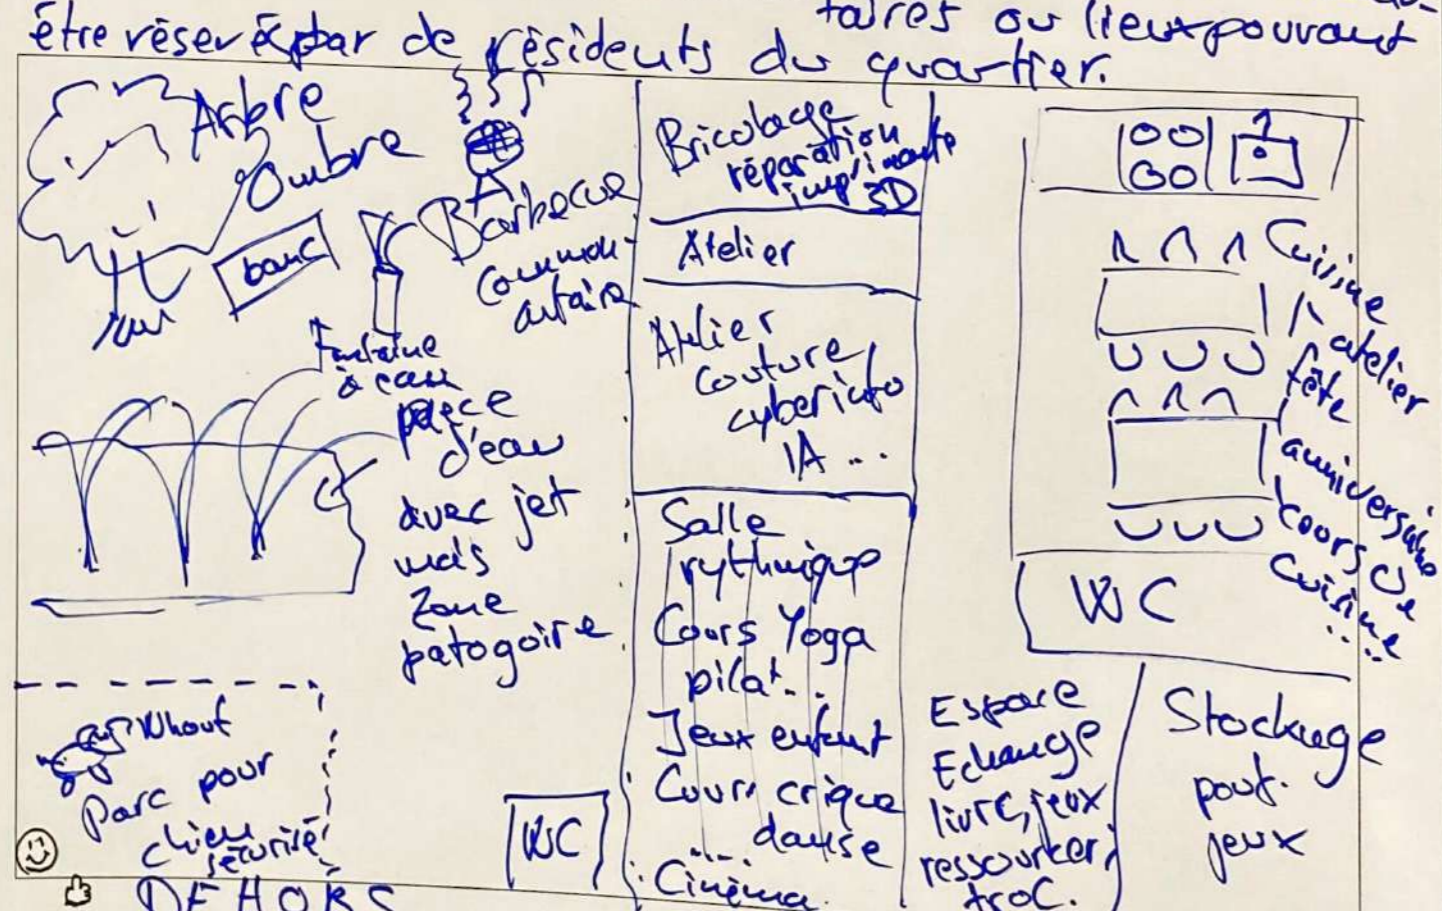 taires ou lieux pouvant
être réservés par de résidents du quartier.
Arbre
Ombre
banc
Barbecue
commun-
autaire
Fontaine
à eau
pièce
d'eau
avec jet
mais
zone
patogoire
Whouf
Parc pour
chien
sécurisé
DEHORS
WC
Bricolage
réparation
imprimante
3D
Atelier
Atelier
couture
cyberinfo
IA ...
Salle
rythmique
Cours Yoga
pilat...
Jeux enfant
Cours crique
danse
....
Cinéma.
Cuisine
atelier
fête
anniversaire
cours de
cuisine
...
WC
Espace
Echange
livre, jeux
ressourcer,
troc.
Stockage
pout.
jeux